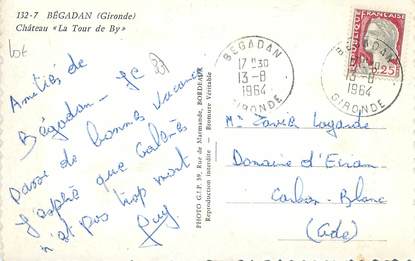 132-7 BÉGADAN (Gironde)
Château «La Tour de By»
Amitiés de
Bégadan
passe de bonnes vacances
J'espère que
n'est pas trop mort
Guy
PHOTO G.I.P. 59, Rue de Marmande, BORDEAUX
Reproduction interdite - Bromure Véritable
BÉGADAN
17 H30
13-8
1964
GIRONDE
RÉPUBLIQUE FRANÇAISE
0,25
BÉGADAN
13-8
1964
GIRONDE
Mr Xavier Lagarde
Domaine d'
Carbon-Blanc
(Gde)